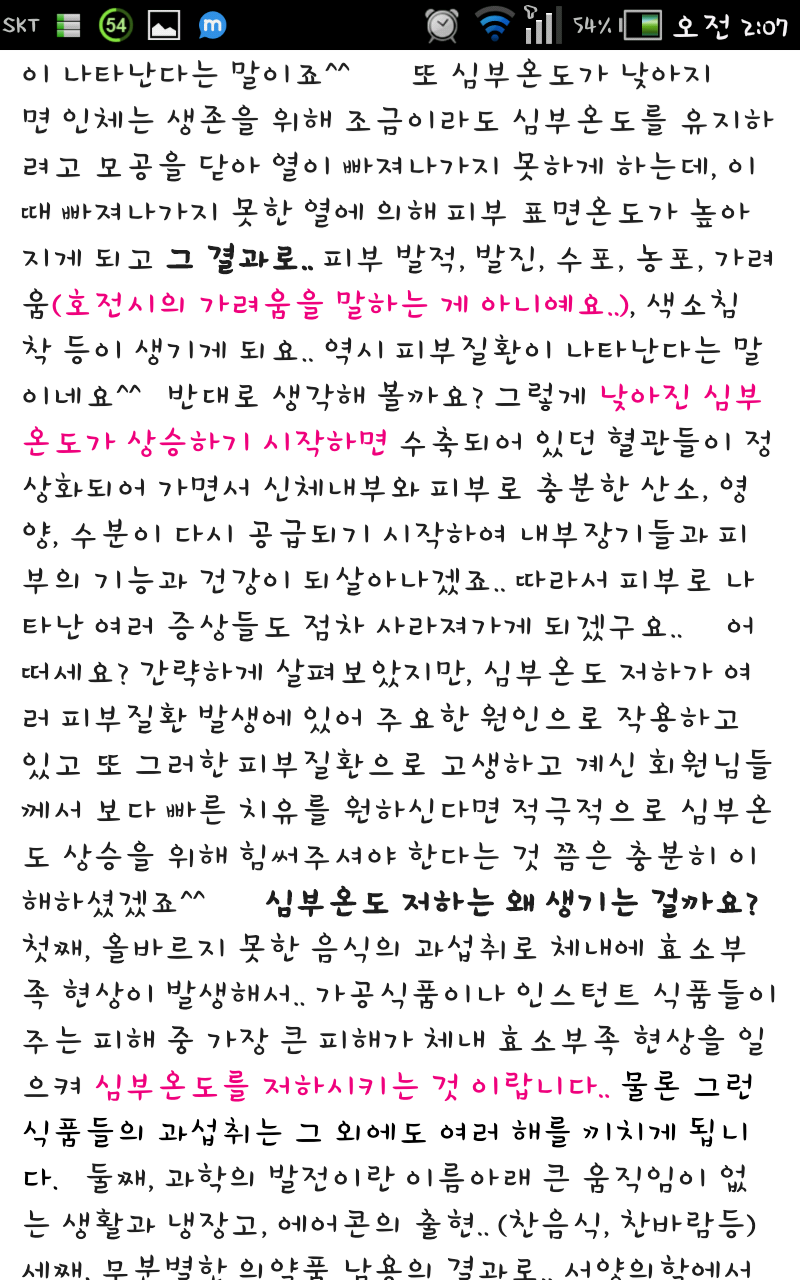 SKT 54 m 54% 오전 2:07
이 나타난다는 말이죠^^ 또 심부온도가 낮아지
면 인체는 생존을 위해 조금이라도 심부온도를 유지하
려고 모공을 닫아 열이 빠져나가지 못하게 하는데, 이
때 빠져나가지 못한 열에 의해 피부 표면온도가 높아
지게 되고 그 결과로.. 피부 발적, 발진, 수포, 농포, 가려
움(호전시의 가려움을 말하는 게 아니예요..), 색소침
착 등이 생기게 되요.. 역시 피부질환이 나타난다는 말
이네요^^ 반대로 생각해 볼까요? 그렇게 낮아진 심부
온도가 상승하기 시작하면 수축되어 있던 혈관들이 정
상화되어 가면서 신체내부와 피부로 충분한 산소, 영
양, 수분이 다시 공급되기 시작하여 내부장기들과 피
부의 기능과 건강이 되살아나겠죠.. 따라서 피부로 나
타난 여러 증상들도 점차 사라져가게 되겠구요.. 어
떠세요? 간략하게 살펴보았지만, 심부온도 저하가 여
러 피부질환 발생에 있어 주요한 원인으로 작용하고
있고 또 그러한 피부질환으로 고생하고 계신 회원님들
께서 보다 빠른 치유를 원하신다면 적극적으로 심부온
도 상승을 위해 힘써주셔야 한다는 것 쯤은 충분히 이
해하셨겠죠^^ 심부온도 저하는 왜 생기는 걸까요?
첫째, 올바르지 못한 음식의 과섭취로 체내에 효소부
족 현상이 발생해서.. 가공식품이나 인스턴트 식품들이
주는 피해 중 가장 큰 피해가 체내 효소부족 현상을 일
으켜 심부온도를 저하시키는 것 이랍니다.. 물론 그런
식품들의 과섭취는 그 외에도 여러 해를 끼치게 됩니
다. 둘째, 과학의 발전이란 이름아래 큰 움직임이 없
는 생활과 냉장고, 에어콘의 출현.. (찬음식, 찬바람등)
세째, 무분별한 의약품 남용의 결과로.. 서양의학에서